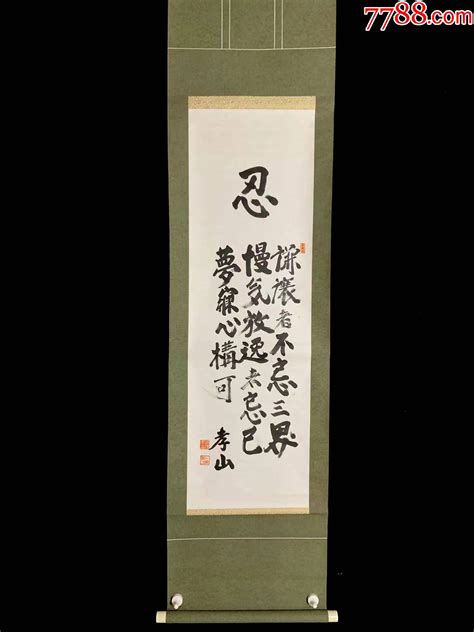 7788.com
忍
謙譲者不忘三界
慢気放逸者忘己
夢寐心構可
孝山